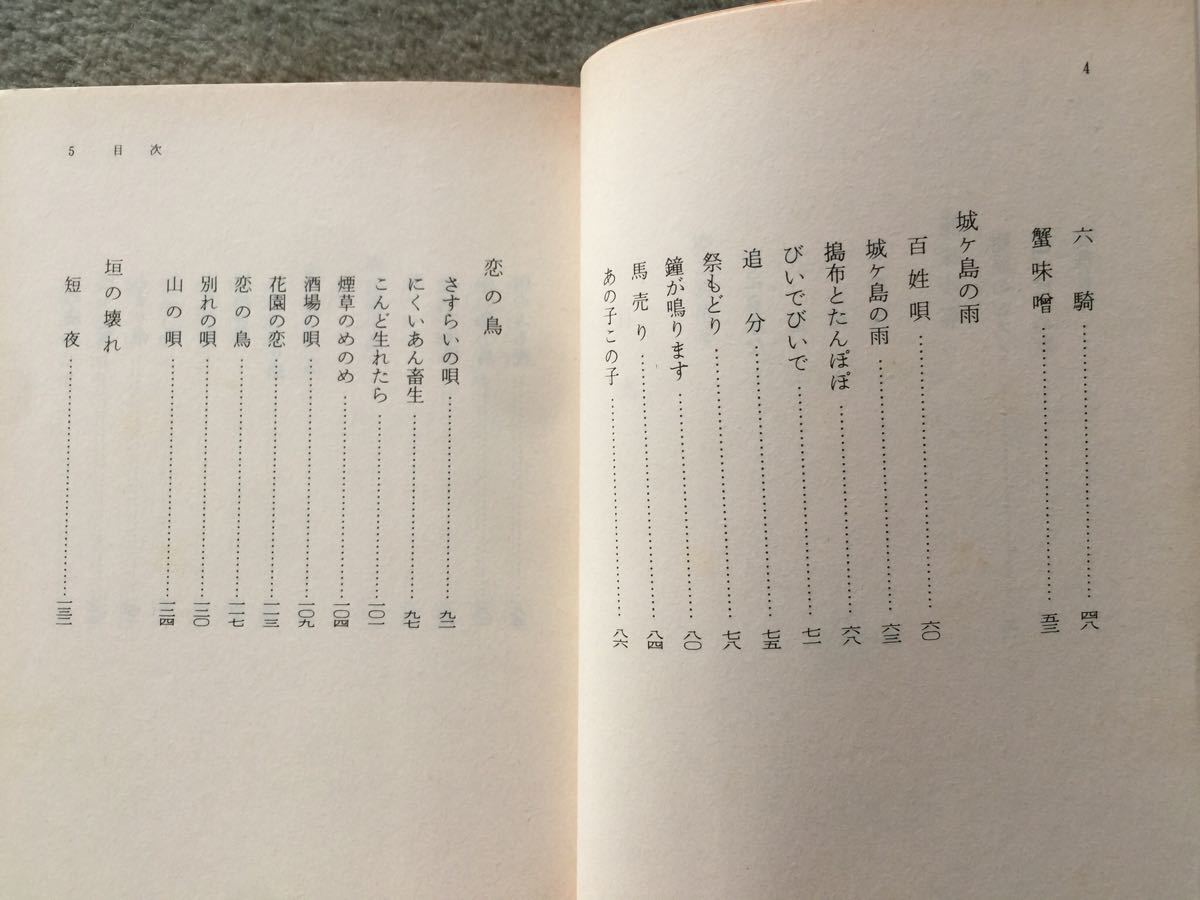 4
六騎……四八
蟹味噌……五三
城ヶ島の雨
百姓唄……六〇
城ヶ島の雨……六三
搗布とたんぽぽ……六八
びいでびいで……七一
追分……七五
祭もどり……七八
鐘が鳴ります……八〇
馬売り……八四
あの子この子……八六
5 目次
恋の鳥
さすらいの唄……九二
にくいあん畜生……九七
こんど生れたら……一〇一
煙草のめのめ……一〇四
酒場の唄……一〇九
花園の恋……一一三
恋の鳥……一一七
別れの唄……一二〇
山の唄……一二四
垣の壊れ
短夜……一三二